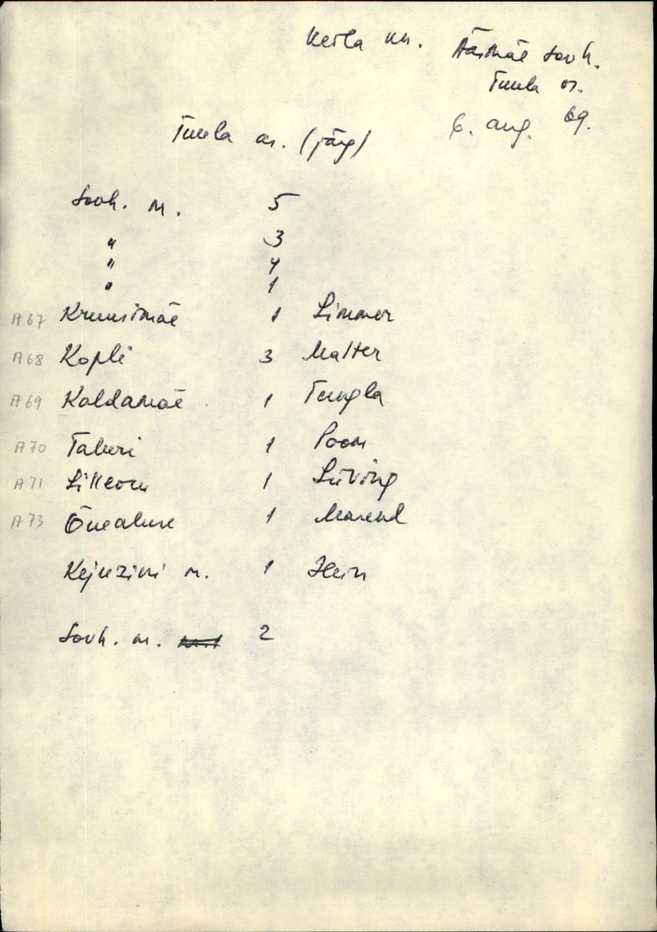 Keila kn. Ääsmäe sovh.
Tuula os.
6. aug. 69.
Tuula os. (järg)
Sovh. m. 5
" 3
" 4
" 1
A67 Kruusimäe 1 Limmer
A68 Kopli 3 Malter
A69 Koldamäe 1 Tungla
A70 Taheri 1 Poom
A71 Lilleoru 1 Lüving
A73 Õnealuse 1
m. 1 Hein
Sovh. m. 2